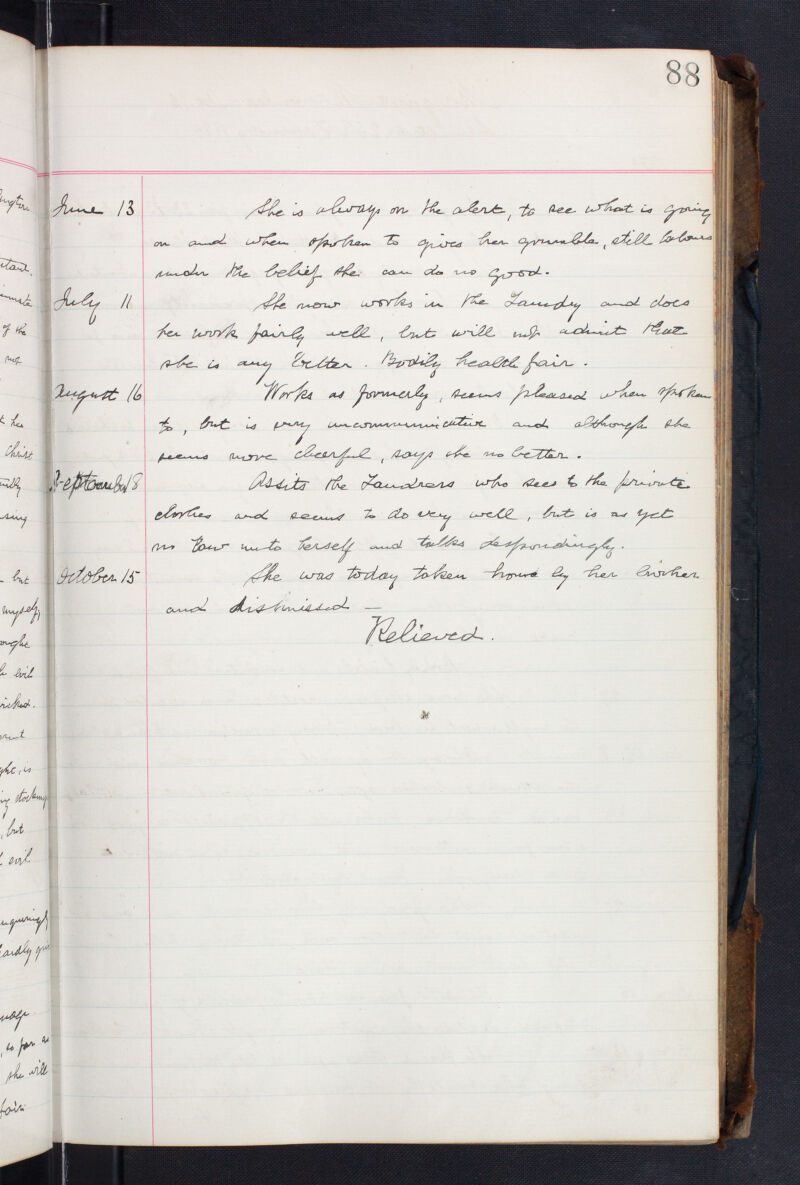 88
June 13 She is always on the alert, to see what is going
on and when spoken to gives her grumble, still labours
under the belief she can do no good.
July 11 She now works in the Laundry and does
her work fairly well, but will not admit that
she is any better. Bodily health fair.
August 16 Works as formerly, seems pleased when spoken
to, but is very uncommunicative and although she
seems more cheerful, says she no better.
September 18 Assits the Laudress who sees to the private
clothes and seems to do very well, but is as yet
no law unto herself and talks despondingly.
October 15 She was today taken home by her brother
and dismissed —
Relieved.